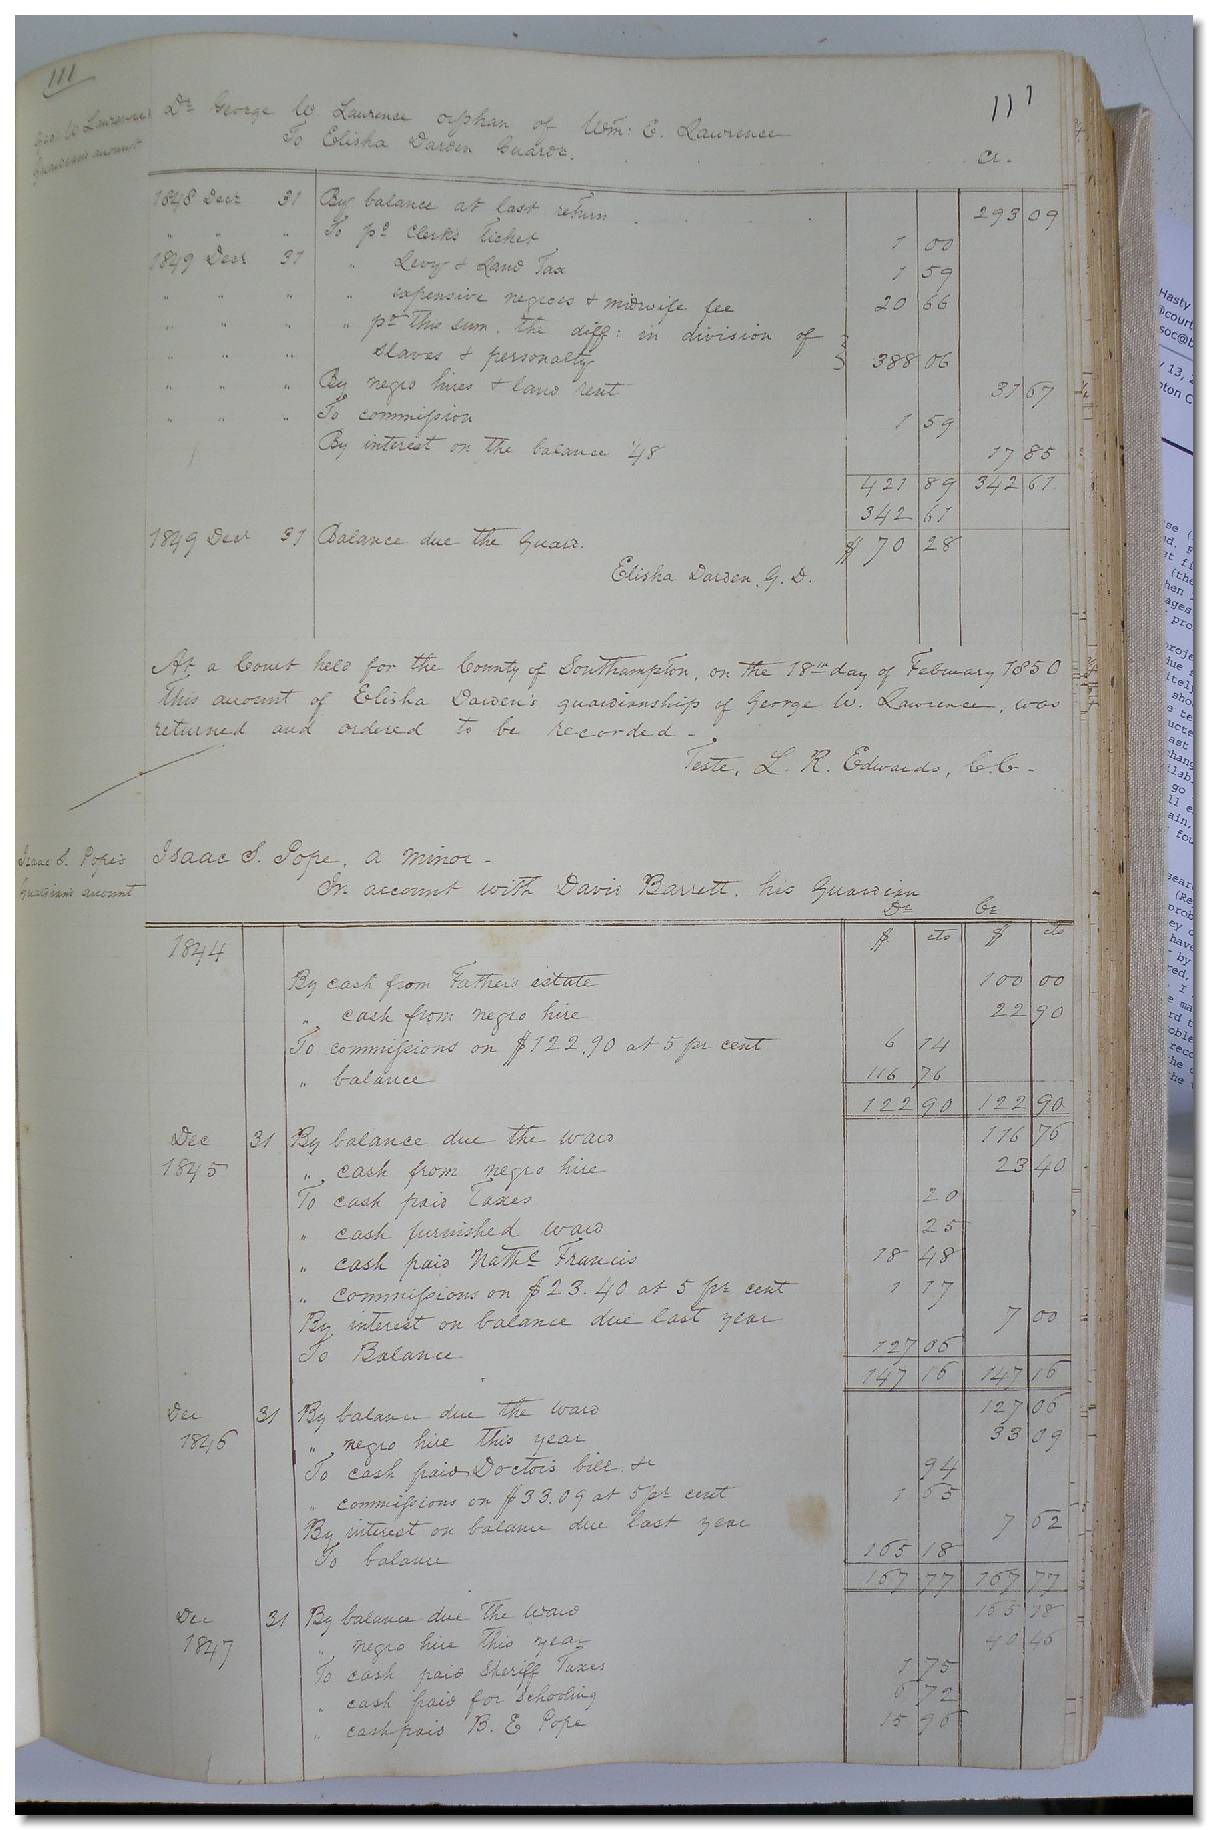 111
111
Geo. W Lawrence
Guardians account
Dr. George W. Lawrence orphan of Wm. E. Lawrence
To Elisha Darden Guardn.
Cr.
1848 Decr 31 By balance at last return 293 09
" " " To pd Clerks Ticket 1 00
1849 Decr 31 " Levy & Land Tax 1 59
" " " " expensive negroes & midwife fee 20 66
" " " " pd this sum. the diff: in division of
" " " slaves & personalty 388 06
" " " By negro hires & land rent 31 67
" " " To commission 1 59
By interest on the balance '48 17 85
421 89 342 61
342 61
1849 Decr 31 Balance due the Guard. $ 70 28
Elisha Darden, G. D.
At a Court held for the County of Southampton, on the 18th day of February 1850
This account of Elisha Darden's guardianship of George W. Lawrence, was
returned and ordered to be recorded -
Teste, L. R. Edwards, C.C -
Isaac S. Pope's
Guardians account
Isaac S. Pope, a minor -
In account with David Barrett, his Guardian
Dr Cr
1844 $ cts $ cts
By cash from Fathers estate 100 00
" cash from negro hire 22 90
To commissions on $122.90 at 5 pr cent 6 14
" balance 116 76
122 90 122 90
Dec 31 By balance due the ward 116 76
1845 " cash from negro hire 23 40
To cash paid Taxes 20
" cash furnished ward 25
" cash paid Nathl Francis 18 48
" commissions on $23.40 at 5 pr cent 1 17
By interest on balance due last year 7 00
To Balance 127 06
147 16 147 16
Dec 31 By balance due the ward 127 06
1846 " negro hire this year 33 09
To cash paid Doctors bill &c 94
" commissions on $33.09 at 5 pr cent 1 65
By interest on balance due last year 7 62
To balance 165 18
167 77 167 77
Dec 31 By balance due the ward 165 18
1847 " negro hire this year 40 46
To cash paid Sheriff Taxes 1 75
" cash paid for schooling 6 72
" cash paid B. E Pope 15 96